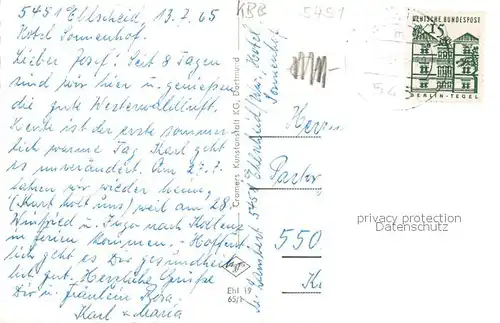 5451 Ehlscheid, 13.7.65
Hotel Sonnenhof.
Lieber Josef! Seit 8 Tagen
sind wir hier u. genießen
die gute Westerwaldluft.
Heute ist der erste sommer-
lich warme Tag. Karl geht
es unverändert. Am 27.7.
fahren wir wieder heim,
(Kurt holt uns) weil am 28.
Winfried u. Ingo nach Koblenz
in Ferien kommen. - Hoffent-
lich geht es Dir gesundheit-
lich gut. Herzliche Grüße
Dir u. Fräulein Rosa
Karl + Maria
Cramers Kunstanstalt KG, Dortmund
Ehl 19
65/1
5451 Ehlscheid/ Hotel
Sonnenhof
KBB 5451
DEUTSCHE BUNDESPOST
15
BERLIN-TEGEL
54
Herrn
Pastor
550
K
privacy protection
Datenschutz